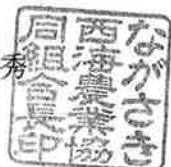 ながさき
西海農業協
同組合長印
秀